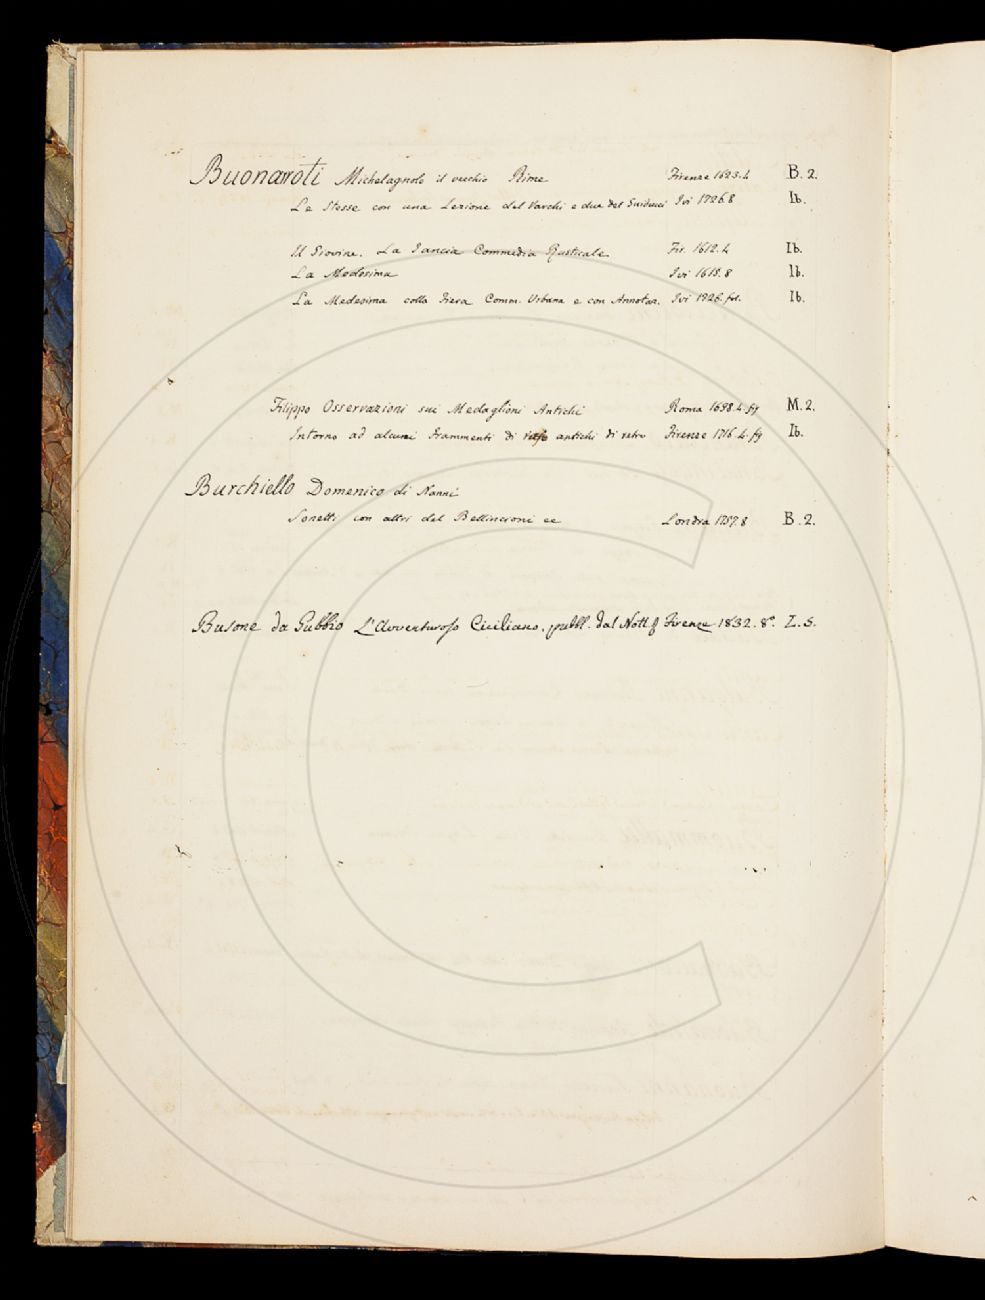 Buonarroti Michelagnolo il vecchio Rime Firenze 1623.4 B. 2.
Le Stesse con una Lezione del Varchi e due del Guiducci Ivi 1726.8 Ib.
Il Giovine. La Tancia Commedia Rusticale Fir. 1612.4 Ib.
La Medesima Ivi 1615.8 Ib.
La Medesima colla Fiera Comm. Urbana e con Annotaz. Ivi 1726. fol. Ib.
Filippo Osservazioni sui Medaglioni Antichi Roma 1698.4. fig M. 2.
Intorno ad alcuni frammenti di vasi antichi di vetro Firenze 1716.4. fig Ib.
Burchiello Domenico di Nanni
Sonetti con altri del Bellincioni ec Londra 1757.8 B. 2.
Busone da Gubbio L'Avventuroso Ciciliano, pubbl. dal Nott Firenze 1832. 8º. Z. 5.